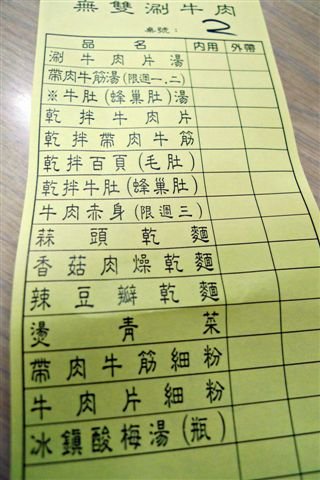 無雙涮牛肉
桌號： 2
品名 內用 外帶
涮牛肉片湯
帶肉牛筋湯(限週一、二)
※牛肚(蜂巢肚)湯
乾拌牛肉片
乾拌帶肉牛筋
乾拌百頁(毛肚)
乾拌牛肚(蜂巢肚)
牛肉赤身(限週三)
蒜頭乾麵
香菇肉燥乾麵
辣豆瓣乾麵
燙青菜
帶肉牛筋細粉
牛肉片細粉
冰鎮酸梅湯(瓶)